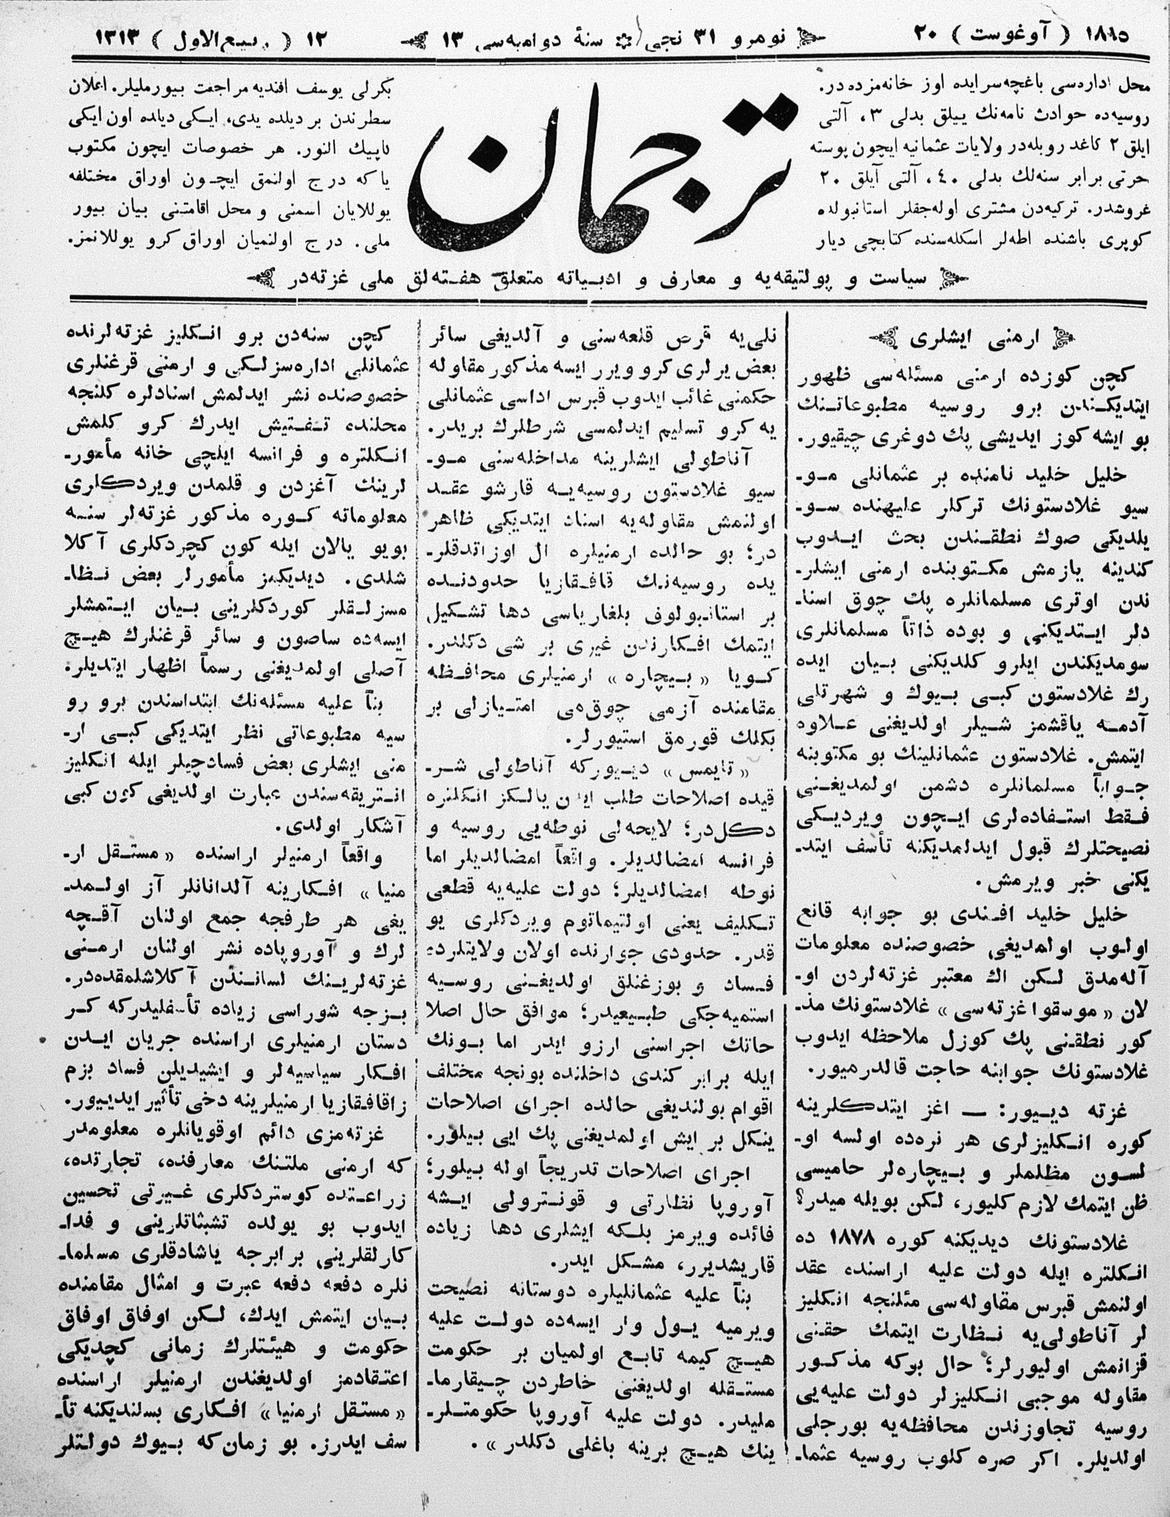 ١٨٩٥ ( آوغوست ) ٢٠
نومرو ٣١ نجی
سنهٔ دوامیه‌سی ١٣
١٢ ( ربیع الاول ) ١٣١٣
محل اداره‌سی باغچه سرایده اوز خانه‌مزده در.
روسیه‌ده حوادث نامه‌نك ییلق بدلی ٣، آلتی
ایلق ٢ کاغد روبله‌در ولایات عثمانیه ایچون پوسته
خرتی برابر سنه‌لك بدلی ٤٠، آلتی آیلق ٢٠
غروشدر. ترکیه‌دن مشتری اوله‌جقلر استانبولده
کوپری باشنده اطه‌لر اسکله‌سنده کتابچی دیار
ترجمان
بکرلی یوسف افندیه مراجعت بیورملیلر. اعلان
سطرندن بر دیلده یدی، ایکی دیلده اون ایکی
کاپیك النور. هر خصوصات ایچون مکتوب
یاکه درج اولنمق ایچون اوراق مختلفه
یوللایان اسمنی و محل اقامتنی بیان بیور
ملی. درج اولنمیان اوراق کرو یوللانمز.
سیاست و پولتیقه‌یه و معارف و ادبیاته متعلق هفته‌لق ملی غزته‌در
ارمنی ایشلری
کچن کوزده ارمنی مسئله‌سی ظهور
ایتدیکندن برو روسیه مطبوعاتنك
بو ایشه کوز ایدیشی پك دوغری چیقیور.
خلیل خلید نامنده بر عثمانلی مو-
سیو غلادستونك ترکلر علیهنده سو-
یلدیکی صوك نطقندن بحث ایدوب
کندینه یازمش مکتوبنده ارمنی ایشلر-
ندن اوتری مسلمانلره پك چوق اسنا-
دلر ایتدیکنی و بوده ذاتاً مسلمانلری
سومدیکندن ایلرو کلدیکنی بیان ایده
رك غلادستون کبی بیوك و شهرتلی
آدمه یاقشمز شیلر اولدیغنی علاوه
ایتمش. غلادستون عثمانلینك بو مکتوبنه
جواباً مسلمانلره دشمن اولمدیغنی
فقط استفاده‌لری ایچون ویردیکی
نصیحتلرك قبول ایدلمدیکنه تأسف ایتد-
یکنی خبر ویرمش.
خلیل خلید افندی بو جوابه قانع
اولوب اولمدیغی خصوصنده معلومات
آله‌مدق لکن اك معتبر غزته‌لردن او-
لان « موسقوا غزته‌سی » غلادستونك مذ-
کور نطقنی پك کوزل ملاحظه ایدوب
غلادستونك جوابنه حاجت قالدرمیور.
غزته دییور: — اغز ایتدکلرینه
کوره انکلیزلری هر نره‌ده اولسه او-
لسون مظلملر و بیچاره‌لر حامیسی
ظن ایتمك لازم کلیور، لکن بویله میدر؟
غلادستونك دیدیکنه کوره ١٨٧٨ ده
انکلتره ایله دولت علیه اراسنده عقد
اولنمش قبرس مقاوله‌سی مئلنجه انکلیز
لر آناطولی‌یه نظارت ایتمك حقنی
قزانمش اولیورلر؛ حال بوکه مذکور
مقاوله موجبی انکلیزلر دولت علیه‌یی
روسیه تجاوزندن محافظه‌یه بورجلی
اولدیلر. اکر صره کلوب روسیه عثما-
نلی‌یه قرص قلعه‌سنی و آلدیغی سائر
بعض یرلری کرو ویرر ایسه مذکور مقاوله
حکمنی غائب ایدوب قبرس اداسی عثمانلی
یه کرو تسلیم ایدلمسی شرطلرك بریدر.
آناطولی ایشلرینه مداخله‌سنی مو-
سیو غلادستون روسیه‌یه قارشو عقد
اولنمش مقاوله‌یه اسناد ایتدیکی ظاهر
در؛ بو حالده ارمنیلره ال اوزاتدقلر-
یده روسیه‌نك قافقازیا حدودنده
بر استانبولوف بلغاریاسی دها تشکیل
ایتمك افکارندن غیری بر شی دکلدر.
کویا « بیچاره » ارمنیلری محافظه
مقامنده آزمی چوق‌می امتیازلی بر
بکلك قورمق استیورلر.
« تایمس » دییورکه آناطولی شر-
قیده اصلاحات طلب ایدن یالکز انکلتره
دکل‌در؛ لایحه‌لی نوطه‌یی روسیه و
فرانسه امضالدیلر. واقعاً امضالدیلر اما
نوطه امضالدیلر؛ دولت علیه‌یه قطعی
تکلیف یعنی اولتیماتوم ویردکلری یو
قدر. حدودی جوارنده اولان ولایتلرده
فساد و بوزغنلق اولدیغنی روسیه
استمیه‌جکی طبیعیدر؛ موافق حال اصلا
حاتك اجراسنی ارزو ایدر اما بونك
ایله برابر کندی داخلنده بونجه مختلف
اقوام بولندیغی حالده اجرای اصلاحات
ینکل بر ایش اولمدیغنی پك ایی بیلور.
اجرای اصلاحات تدریجاً اوله بیلور؛
آوروپا نظارتی و قونترولی ایشه
فائده ویرمز بلکه ایشلری دها زیاده
قاریشدیرر، مشکل ایدر.
بناً علیه عثمانلیلره دوستانه نصیحت
ویرمیه یول وار ایسه‌ده دولت علیه
هیچ کیمه تابع اولمیان بر حکومت
مستقله اولدیغنی خاطردن چیقارما-
ملیدر. دولت علیه آوروپا حکومتلر-
ینك هیچ برینه باغلی دکلدر ».
کچن سنه‌دن برو انکلیز غزته‌لرنده
عثمانلی اداره‌سزلکی و ارمنی قرغنلری
خصوصنده نشر ایدلمش اسنادلره کلنجه
محلنده تفتیش ایدرك کرو کلمش
انکلتره و فرانسه ایلچی خانه مأمور-
لرینك آغزدن و قلمدن ویردکلری
معلوماته کوره مذکور غزته‌لر سنه
بویو یالان ایله کون کچردکلری آکلا
شلدی. دیدیکمز مأمورلر بعض نظا-
مسزلقلر کوردکلرینی بیان ایتمشلر
ایسه‌ده ساصون و سائر قرغنلرك هیچ
آصلی اولمدیغنی رسماً اظهار ایتدیلر.
بناً علیه مسئله‌نك ابتداسندن برو رو
سیه مطبوعاتی نظر ایتدیکی کبی ار-
منی ایشلری بعض فسادچیلر ایله انکلیز
انتریقه‌سندن عبارت اولدیغی کون کبی
آشکار اولدی.
واقعاً ارمنیلر اراسنده « مستقل ار-
منیا » افکارینه آلدانانلر آز اولمد-
یغی هر طرفجه جمع اولنان آقچه
لرك و آوروپاده نشر اولنان ارمنی
غزته‌لرینك لسانندن آکلاشلمقده‌در.
بزجه شوراسی زیاده تأسفلیدرکه کر
دستان ارمنیلری اراسنده جریان ایدن
افکار سیاسیه‌لر و ایشیدیلن فساد بزم
زاقافقازیا ارمنیلرینه دخی تأثیر ایدییور.
غزته‌مزی دائم اوقویانلره معلومدر
که ارمنی ملتنك معارفده، تجارتده،
زراعتده کوستردکلری غیرتی تحسین
ایدوب بو یولده تشبثاتلرینی و فدا-
کارلقلرینی برابرجه یاشادقلری مسلما-
نلره دفعه دفعه عبرت و امثال مقامنده
بیان ایتمش ایدك، لکن اوفاق اوفاق
حکومت و هیئتلرك زمانی کچدیکی
اعتقادمز اولدیغندن ارمنیلر اراسنده
« مستقل ارمنیا » افکاری بسلندیکنه تأ-
سف ایدرز. بو زمان‌که بیوك دولتلر